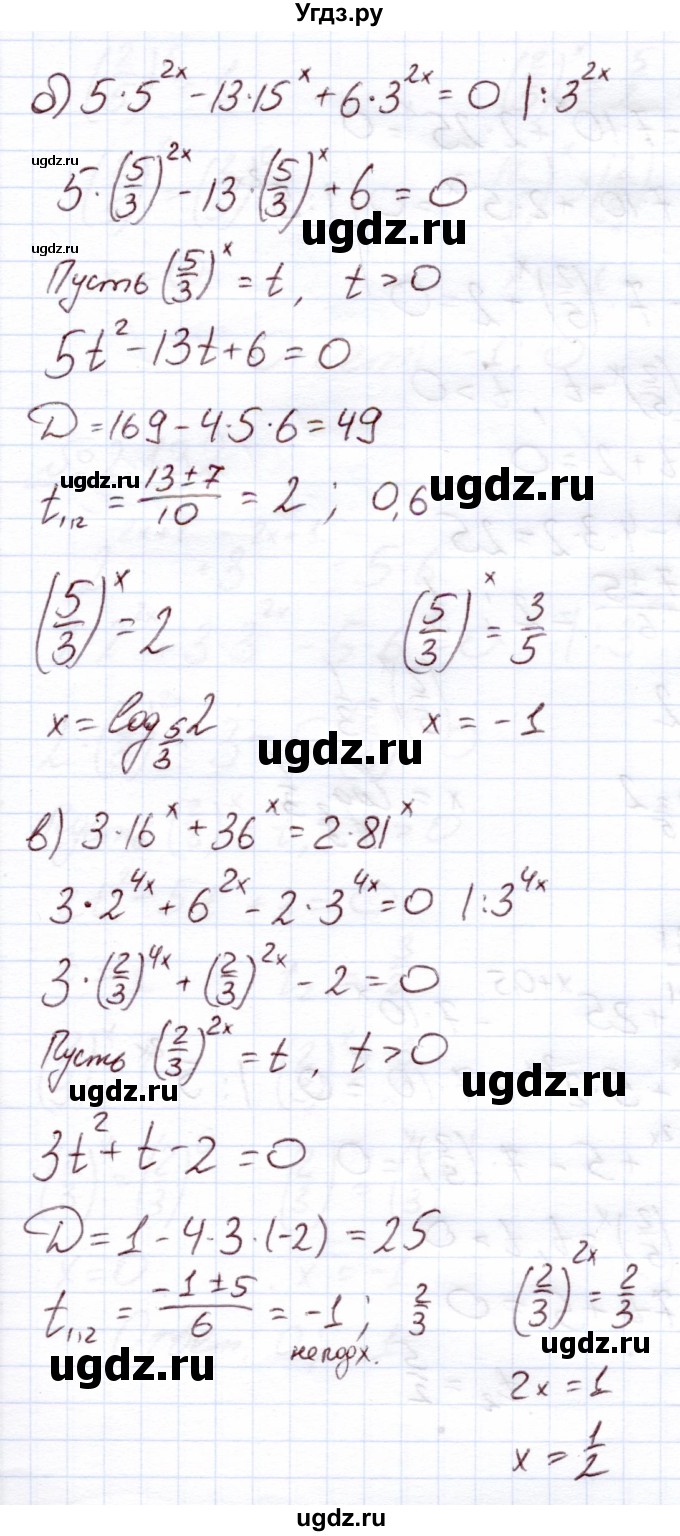 Угдз.ру
б) 5·5^2x − 13·15^x + 6·3^2x = 0 |:3^2x
ugdz.ru
5·(5/3)^2x − 13·(5/3)^x + 6 = 0
ugdz.ru
ugdz.ru
Пусть (5/3)^x = t, t > 0
5t² − 13t + 6 = 0
D = 169 − 4·5·6 = 49
ugdz.ru
ugdz.ru
t₁,₂ = (13 ± 7)/10 = 2; 0,6
(5/3)^x = 2 (5/3)^x = 3/5
x = log_5/3 2 x = −1
ugdz.ru
в) 3·16^x + 36^x = 2·81^x
3·2^4x + 6^2x − 2·3^4x = 0 |:3^4x
3·(2/3)^4x + (2/3)^2x − 2 = 0
Пусть (2/3)^2x = t, t > 0
ugdz.ru
ugdz.ru
3t² + t − 2 = 0
D = 1 − 4·3·(−2) = 25
t₁,₂ = (−1 ± 5)/6 = −1; 2/3 (2/3)^2x = 2/3
не подх.
ugdz.ru
ugdz.ru
2x = 1
x = 1/2
ugdz.ru